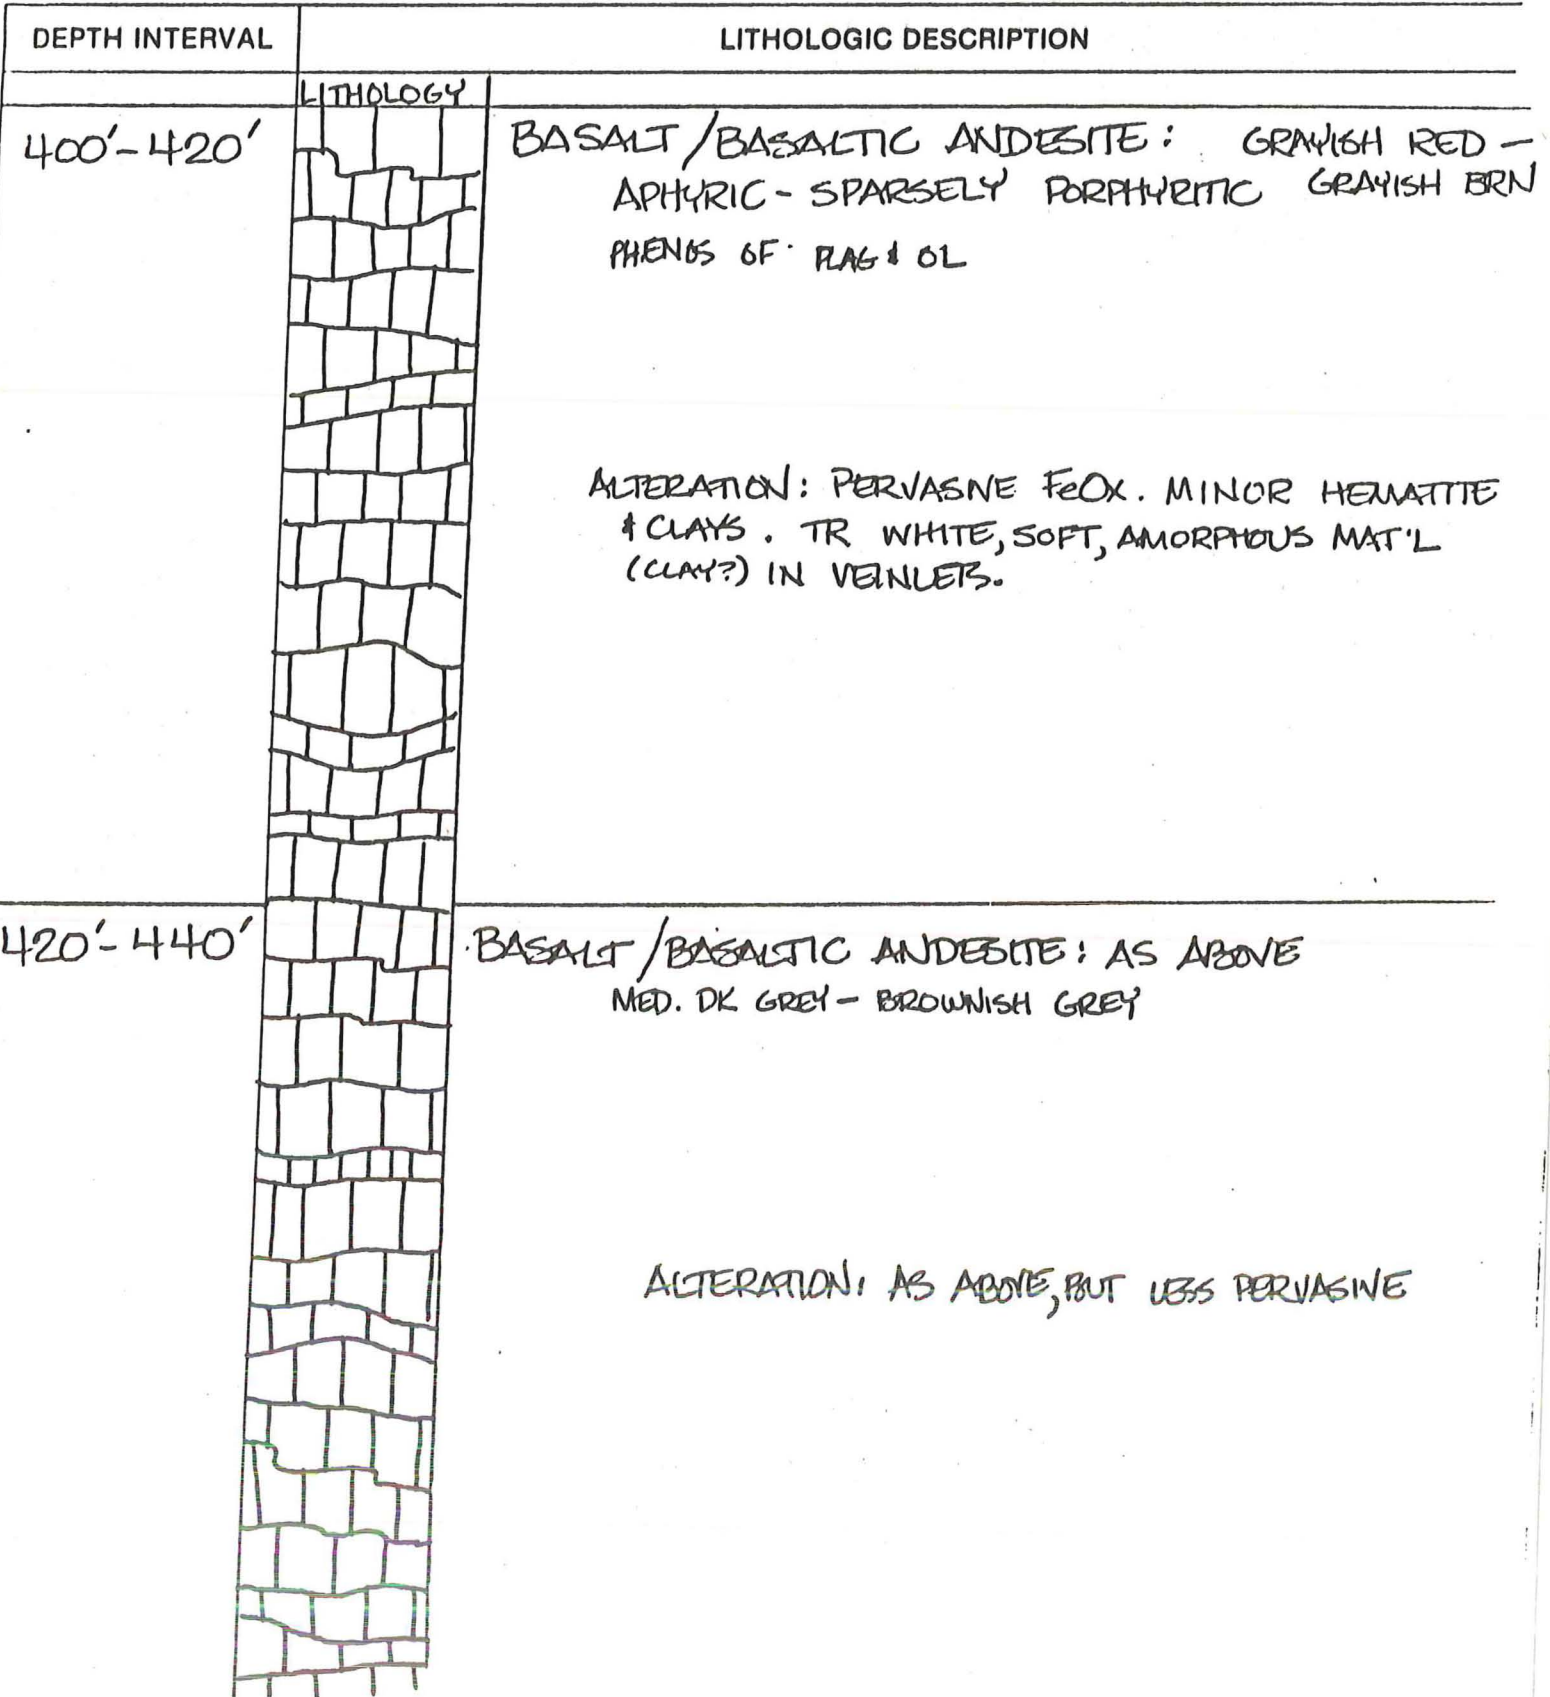 DEPTH INTERVAL LITHOLOGIC DESCRIPTION
LITHOLOGY
400'-420' BASALT/BASALTIC ANDESITE: GRAYISH RED -
APHYRIC - SPARSELY PORPHYRITIC GRAYISH BRN
PHENOS OF PLAG & OL
ALTERATION: PERVASIVE FeOx. MINOR HEMATITE
& CLAYS. TR WHITE, SOFT, AMORPHOUS MAT'L
(CLAY?) IN VEINLETS.
420'-440' BASALT/BASALTIC ANDESITE: AS ABOVE
MED. DK GREY - BROWNISH GREY
ALTERATION: AS ABOVE, BUT LESS PERVASIVE